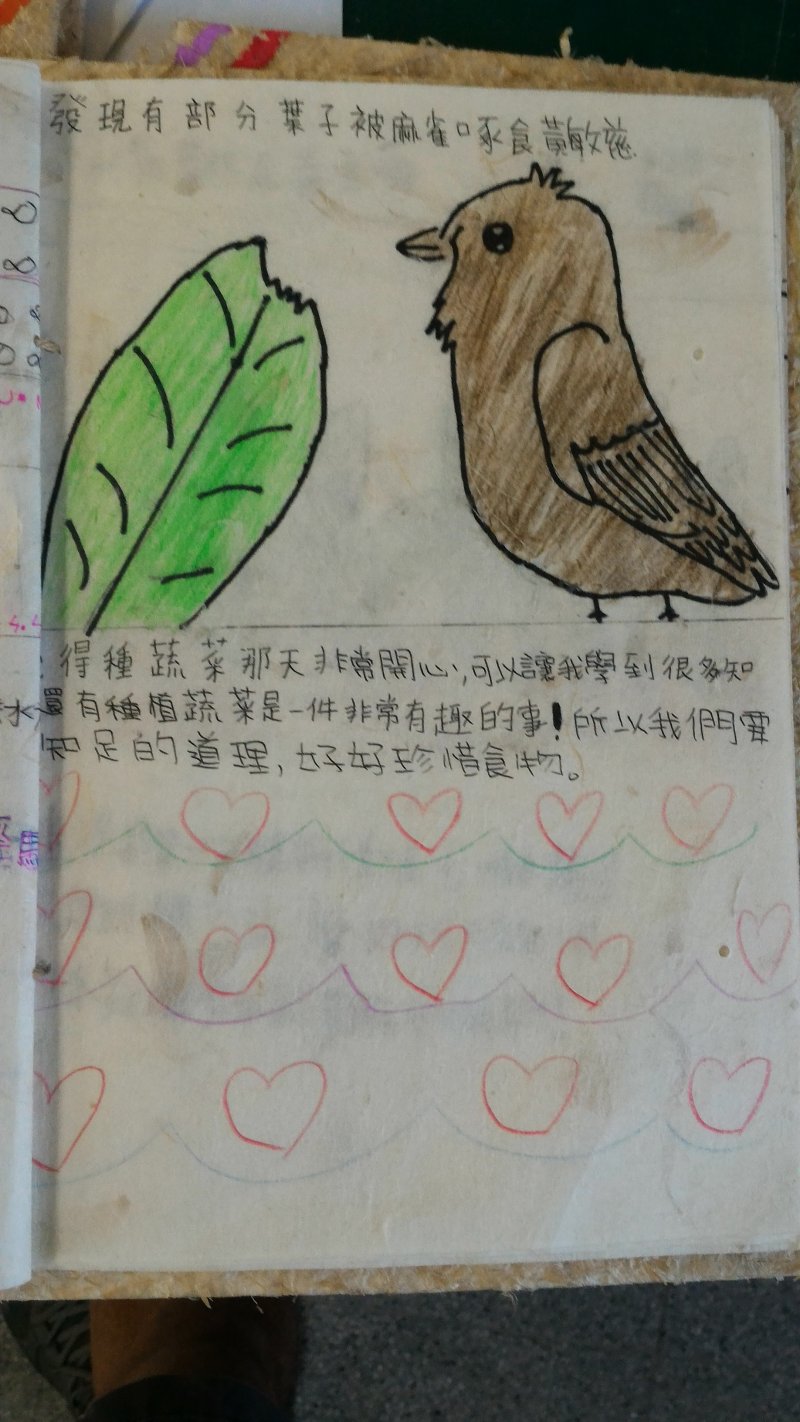 發現有部分葉子被麻雀啄食黃敏慈
得種蔬菜那天非常開心,可以讓我學到很多知
水還有種植蔬菜是一件非常有趣的事!所以我們要
知足的道理,好好珍惜食物。
8
8